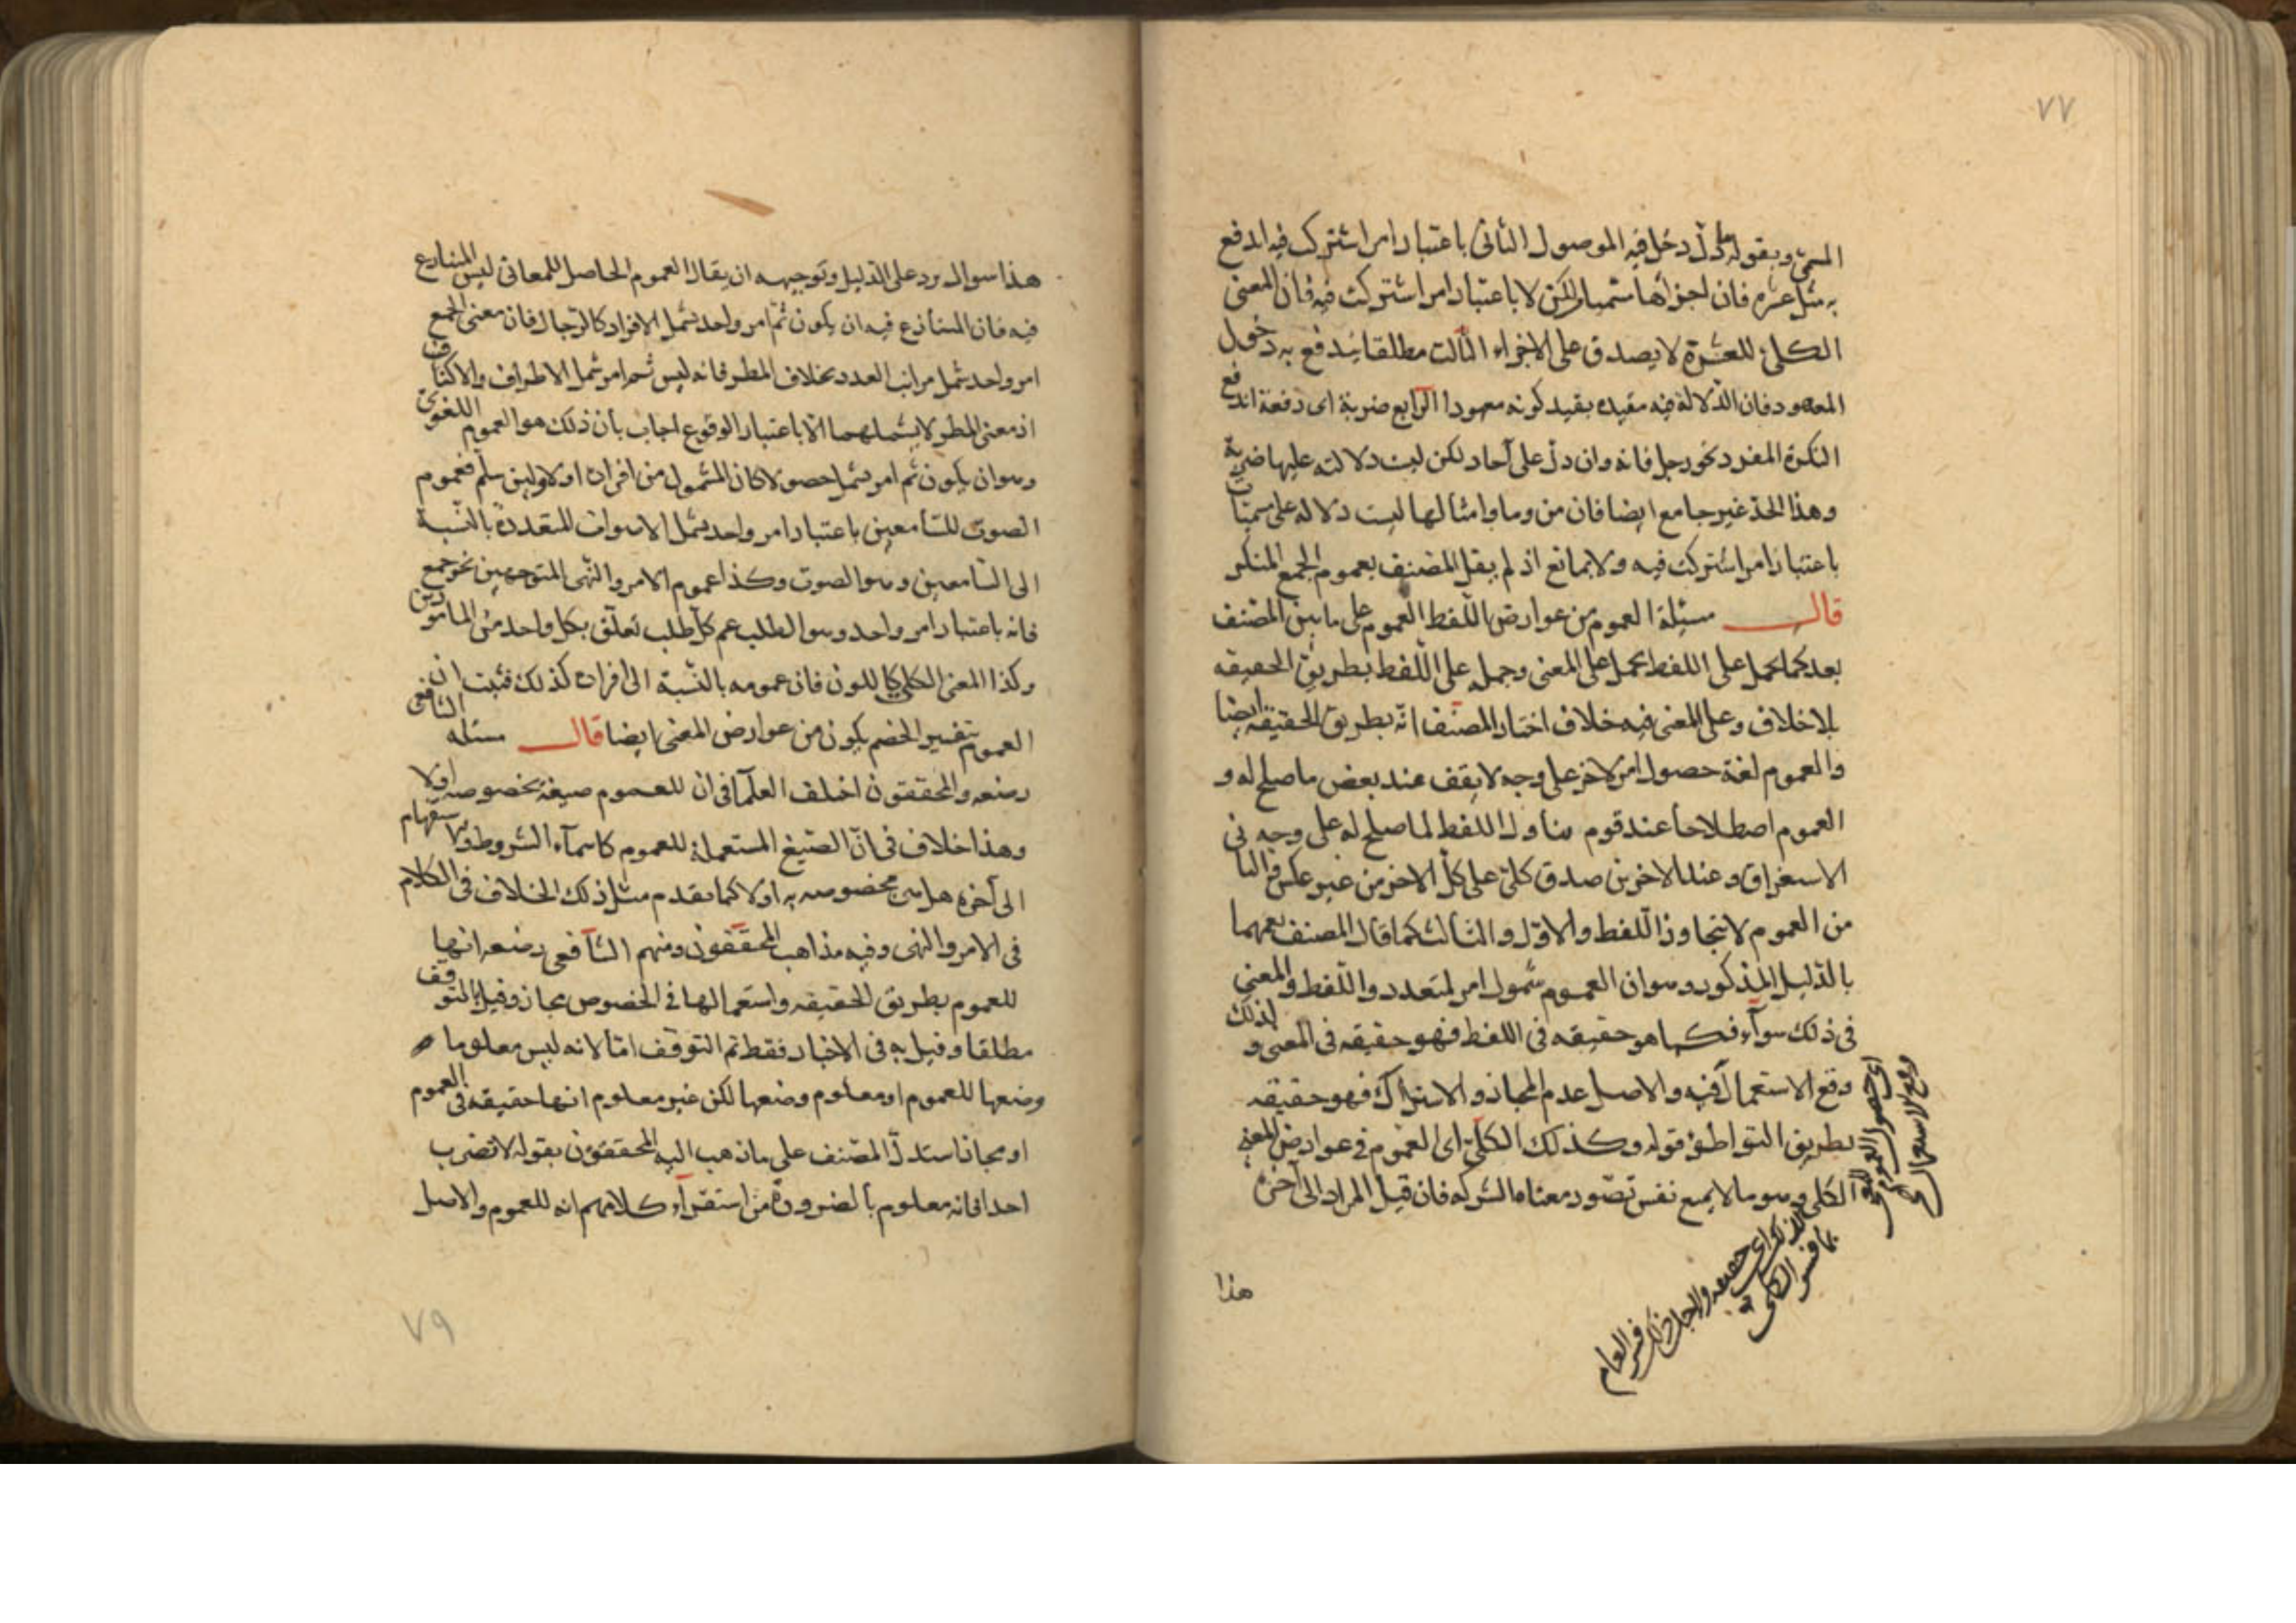 ٧٧
المسمى وبقوله دل دخل فيه الموصول الثانى باعتبار امر اشتركت فيه اندفع
به مثل عشرة فان اجزاها مسميات لكن لا باعتبار امر اشتركت فيه فان المعنى
الكلى للعشرة لا يصدق على الاجزاء الثالث مطلقا يندفع به دخول
المعهود فان الدلالة فيه مقيدة بقيد كونه معهودا الرابع ضربة اى دفعة اندفع
النكرة المفرد نحو رجل فانه وان دل على آحاد لكن ليست دلالته عليها ضربة
وهذا الحد غير جامع ايضا فان من وما وامثالها ليست دلاله على مسميات
باعتبار امر اشتركت فيه ولا بمانع اذ لم يقل المصنف بعموم الجمع المنكر
قال مسئلة العموم من عوارض اللفظ العموم على ما بين المصنف
بعد كما يحمل على اللفظ يحمل على المعنى وحمله على اللفظ بطريق الحقيقه
بلا خلاف وعلى المعنى فيه خلاف اختار المصنف انه بطريق الحقيقة ايضا
والعموم لغة حصول امر لاخر على وجه لا يقف عند بعض ما صلح له و
العموم اصطلاحا عند قوم تناول اللفظ لما صلح له على وجه فى
الاستغراق وعند الاخرين صدق كلى على كل الاخر من غير عكس فالثانى
من العموم لا يتجاوز اللفظ والاول والثالث كما قال المصنف يعمهما
بالدليل المذكور وهو ان العموم شمول امر لمتعدد واللفظ والمعنى
فى ذلك سوآء فكما هو حقيقه فى اللفظ فهو حقيقه فى المعنى و لذلك
وقع الاستعمال فيه والاصل عدم المجاز والاشتراك فهو حقيقه
بطريق التواطؤ قوله وكذلك الكلى اى العموم فى عوارض المعنى
الكلى وهو ما لا يمنع نفس تصور معناه الشركه فان قيل المراد الى آخره
هذا
هذا سوال يرد على الدليل وتوجيهه ان يقال العموم الحاصل للمعانى ليس المتنازع
فيه فان المتنازع فيه ان يكون ثم امر واحد يشمل الافراد كالرجال فان معنى الجمع
امر واحد شمل مراتب العدد بخلاف المطر فانه ليس ثم امر شمل الاطراف والاكناف
اذ معنى المطر لا يشملهما الا باعتبار الوقوع اجاب بأن ذلك هو العموم اللغوى
وهو ان يكون ثم امر يشمل حصولا كان المشمول من افراده او لا ولين سلم فعموم
الصوت للسامعين باعتبار امر واحد يشمل الاصوات المتعددة بالنسبة
الى السامعين وهو الصوت وكذا عموم الامر والنهى المتوجهين نحو جمع
فانه باعتبار امر واحد وهو الطلب عم كل طلب تعلق بكل واحد من المامورين
وكذا المعنى الكلى كاللون فان عمومه بالنسبة الى افراده كذلك فثبت ان
العموم بتفسير الخصم يكون من عوارض المعنى ايضا قال مسئله الشافعى
رضعه والمحققون اختلف العلمآ فى ان للعموم صيغة بخصوصه اولا
وهذا خلاف فى ان الصيغ المستعملة للعموم كاسمآء الشروط والاستفهام
الى آخره هل هى مخصوصه به اولا كما تقدم مثل ذلك الخلاف فى الكلام
فى الامر والنهى وفيه مذاهب المحققون ومنهم الشافعى رضعه انها
للعموم بطريق الحقيقه واستعمالها فى الخصوص مجاز وقيل بالتوقف
مطلقا وقيل به فى الاخبار فقط ثم التوقف امّا لانه ليس معلوما
وضعها للعموم او معلوم وضعها لكن غير معلوم انها حقيقه فى العموم
او مجاز استدل المصنف على ما ذهب اليه المحققون بقوله لا تضرب
احدا فانه معلوم بالضرورة من استقرآء كلامهم انه للعموم والاصل
٧٩